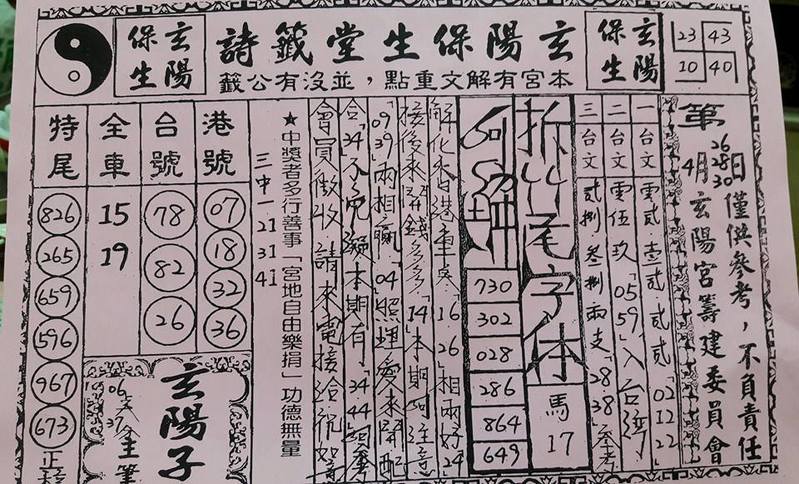 玄陽保生堂籤詩
本宮有解文重點，並沒有公籤
玄陽
保生
玄陽
保生
23 43
10 40
第
4月 26 28 30 日
僅供參考，不負責任
玄陽宮籌建委員會
一台文 零貳 壹貳 貳貳 02.12.22
二台文 零伍玖 0559 入台灣
三台文 貳捌 叁捌 兩支 28.38 參考
拆 尾字体
馬
17
730
302
028
286
864
649
16 26 相兩好 24
接後來開錢多多 14 本期可注意
09 39 兩相贏 04 照理愛來開配
34 本期有 34 44
會員做收 請來電接洽
★中獎者多行善事「宮地自由樂捐」功德無量
三中一 21 31 41
港號
07
18
32
36
台號
78
82
26
全車
15
19
特尾
826
265
659
596
967
673
玄陽子
06
37
主筆